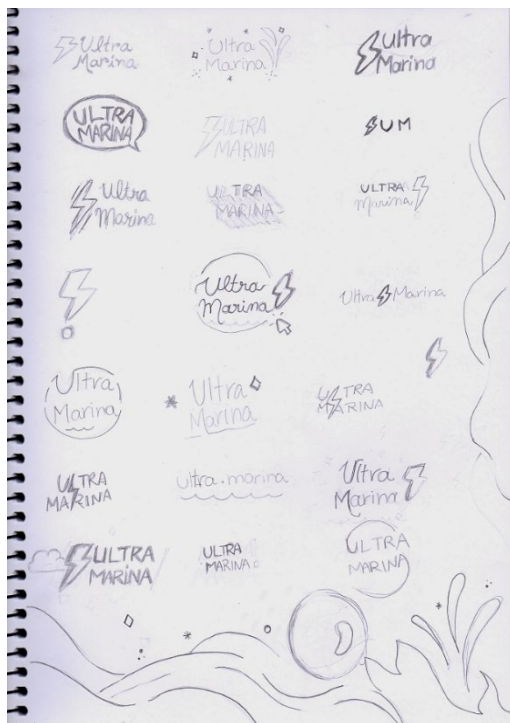 Ultra
Marina
Ultra
Marina
Ultra
Marina
ULTRA
MARINA
ULTRA
MARINA
UM
Ultra
Marina
ULTRA
MARINA
ULTRA
Marina
Ultra
Marina
Ultra Marina
Ultra
Marina
Ultra
Marina
ULTRA
MARINA
ULTRA
MARINA
ultra.marina
Ultra
Marina
ULTRA
MARINA
ULTRA
MARINA
ULTRA
MARINA